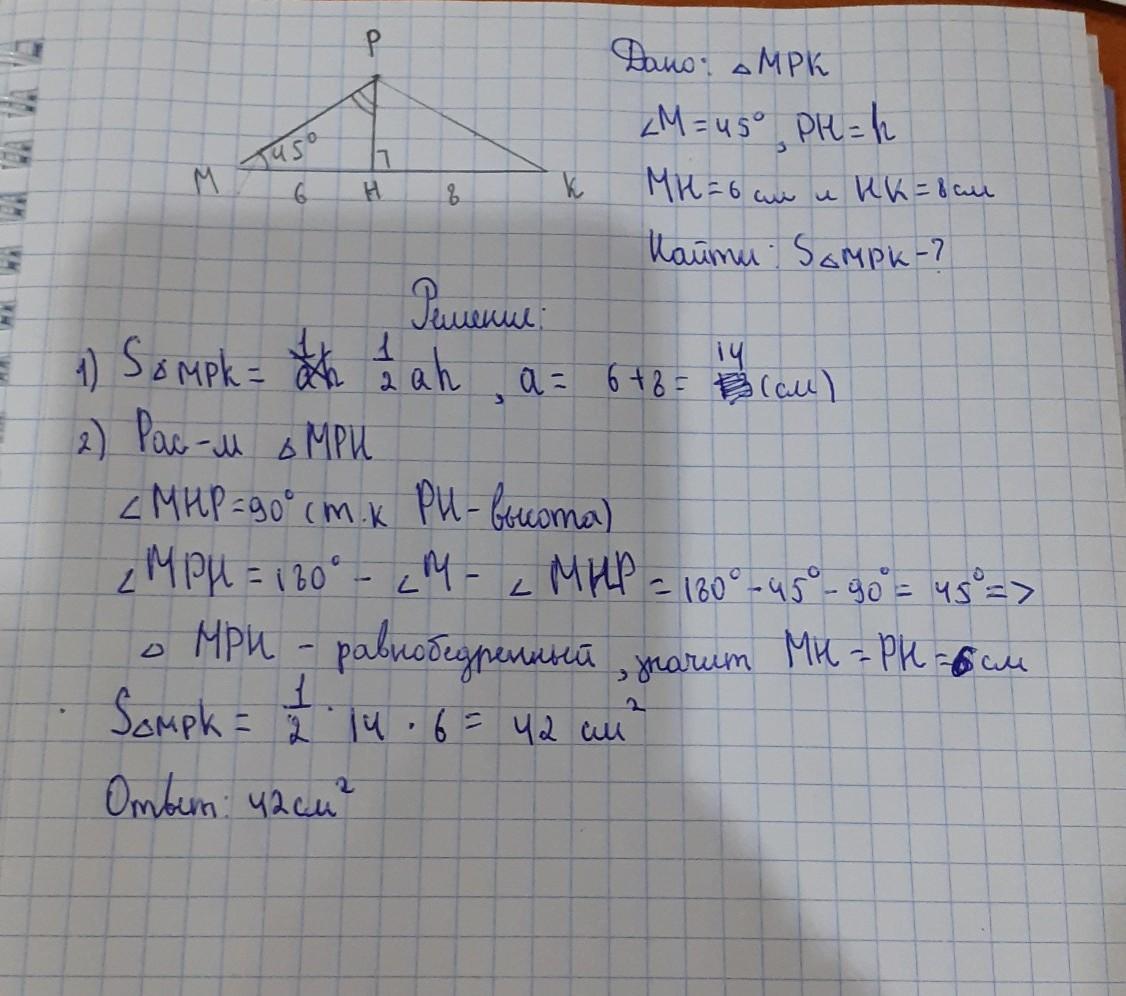 P
45°
M 6 H 8 K
Дано: △MPK
∠M=45°, PH=h
MH=6 см и HK=8см
Найти: S△MPK-?
Решение:
1) S△MPK= 1/2 ah, a= 6+8= 14 (см)
2) Рас-м △MPH
∠MHP=90° (т.к PH-высота)
∠MPH=180°-∠M-∠MHP=180°-45°-90°=45°=>
△ MPH - равнобедренный, значит MH=PH=6см
S△MPK= 1/2 · 14 · 6= 42 см²
Ответ: 42см²